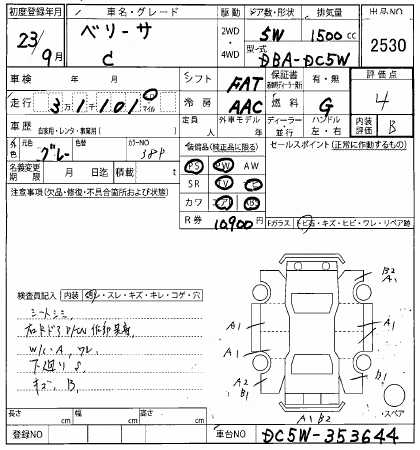 初度登録年月 車名・グレード 駆動 ドア数・形状 排気量 出品NO
23年 9月 ベリーサ C 2WD・4WD 5W 1500cc 2530
型式 DBA-DC5W
車検 年 月 シフト FAT 保証書 有・無 評価点 4
走行 3万1101 km マイル 冷房 AAC 燃料 G
車歴 自家用・レンタ・事業用( ) 定員 人 外車モデル 年 ディーラー 並行 ハンドル 左・右 内装評価 B
外色 元色 グレー 色替 カラーNO 38P
装備品(純正品に限る) セールスポイント(正常に作動するもの)
名義変更期限 月 日迄 積載 t
PS PW AW
SR TV
カワ
R券 10,900円
注意事項(欠品・修復・不具合箇所および状態)
Fガラス トビ石・キズ・ヒビ・ワレ・リペア跡
検査員記入 内装 ・スレ・キズ・キレ・コゲ・穴
シートシミ
W/C・A, ワレ
下廻り S
キズ, B,
B2
A1
A1
A1
A1
A2
B1
B1
A1 B2
スペア
長さ cm 幅 cm 高さ cm
登録NO 車台NO DC5W-353644